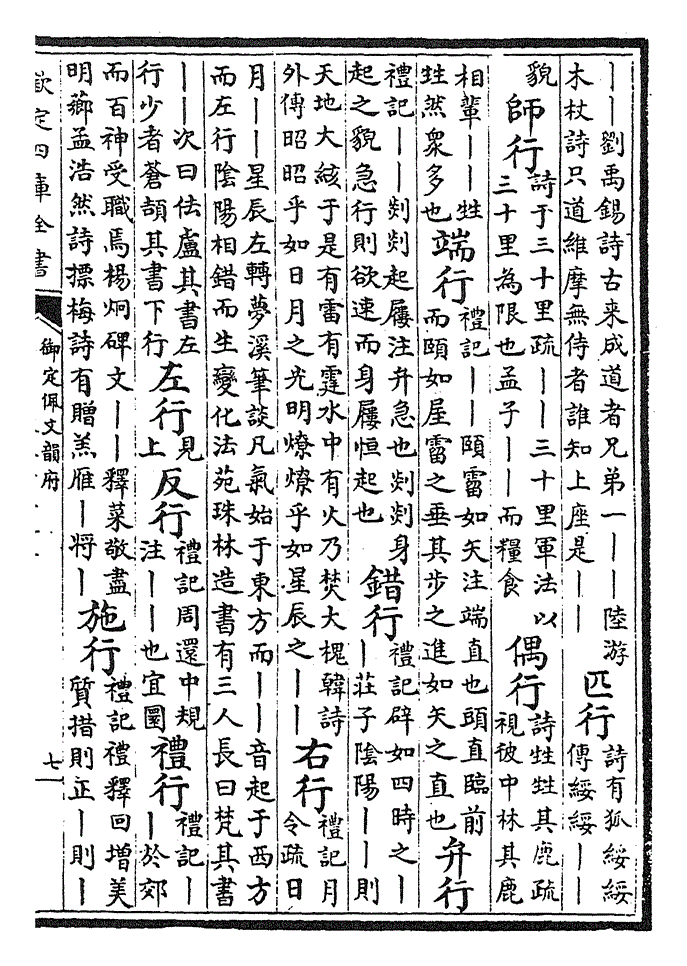 ｜｜劉禹錫詩古来成道者兄弟一｜｜陸游
木杖詩只道維摩無侍者誰知上座是｜｜
匹行
詩有狐綏綏
傳綏綏｜｜
貌
師行
詩于三十里疏｜｜三十里軍法以
三十里為限也孟子｜｜而糧食
偶行
詩甡甡其鹿疏
視彼中林其鹿
相輩｜｜甡
甡然衆多也
端行
禮記｜｜頤霤如矢注端直也頭直臨前
而頤如屋霤之垂其步之進如矢之直也
弁行
禮記｜｜剡剡起屨注弁急也剡剡身
起之貌急行則欲速而身屨恒起也
錯行
禮記辟如四時之｜
｜莊子陰陽｜｜則
天地大絃于是有雷有霆水中有火乃焚大槐韓詩
外傳昭昭乎如日月之光明燎燎乎如星辰之｜｜
右行
禮記月
令疏日
月｜｜星辰左轉夢溪筆談凡氣始于東方而｜｜音起于西方
而左行陰陽相錯而生變化法苑珠林造書有三人長曰梵其書
｜｜次曰佉盧其書左
行少者蒼頡其書下行
左行
見
上
反行
禮記周還中規
注｜｜也宜圜
禮行
禮記｜
｜於郊
而百神受職焉楊炯碑文｜｜釋菜敬盡
明薌孟浩然詩摽梅詩有贈羔雁｜將｜
施行
禮記禮釋回增美
質措則正｜則｜
欽定四庫全書
御定佩文韻府
七